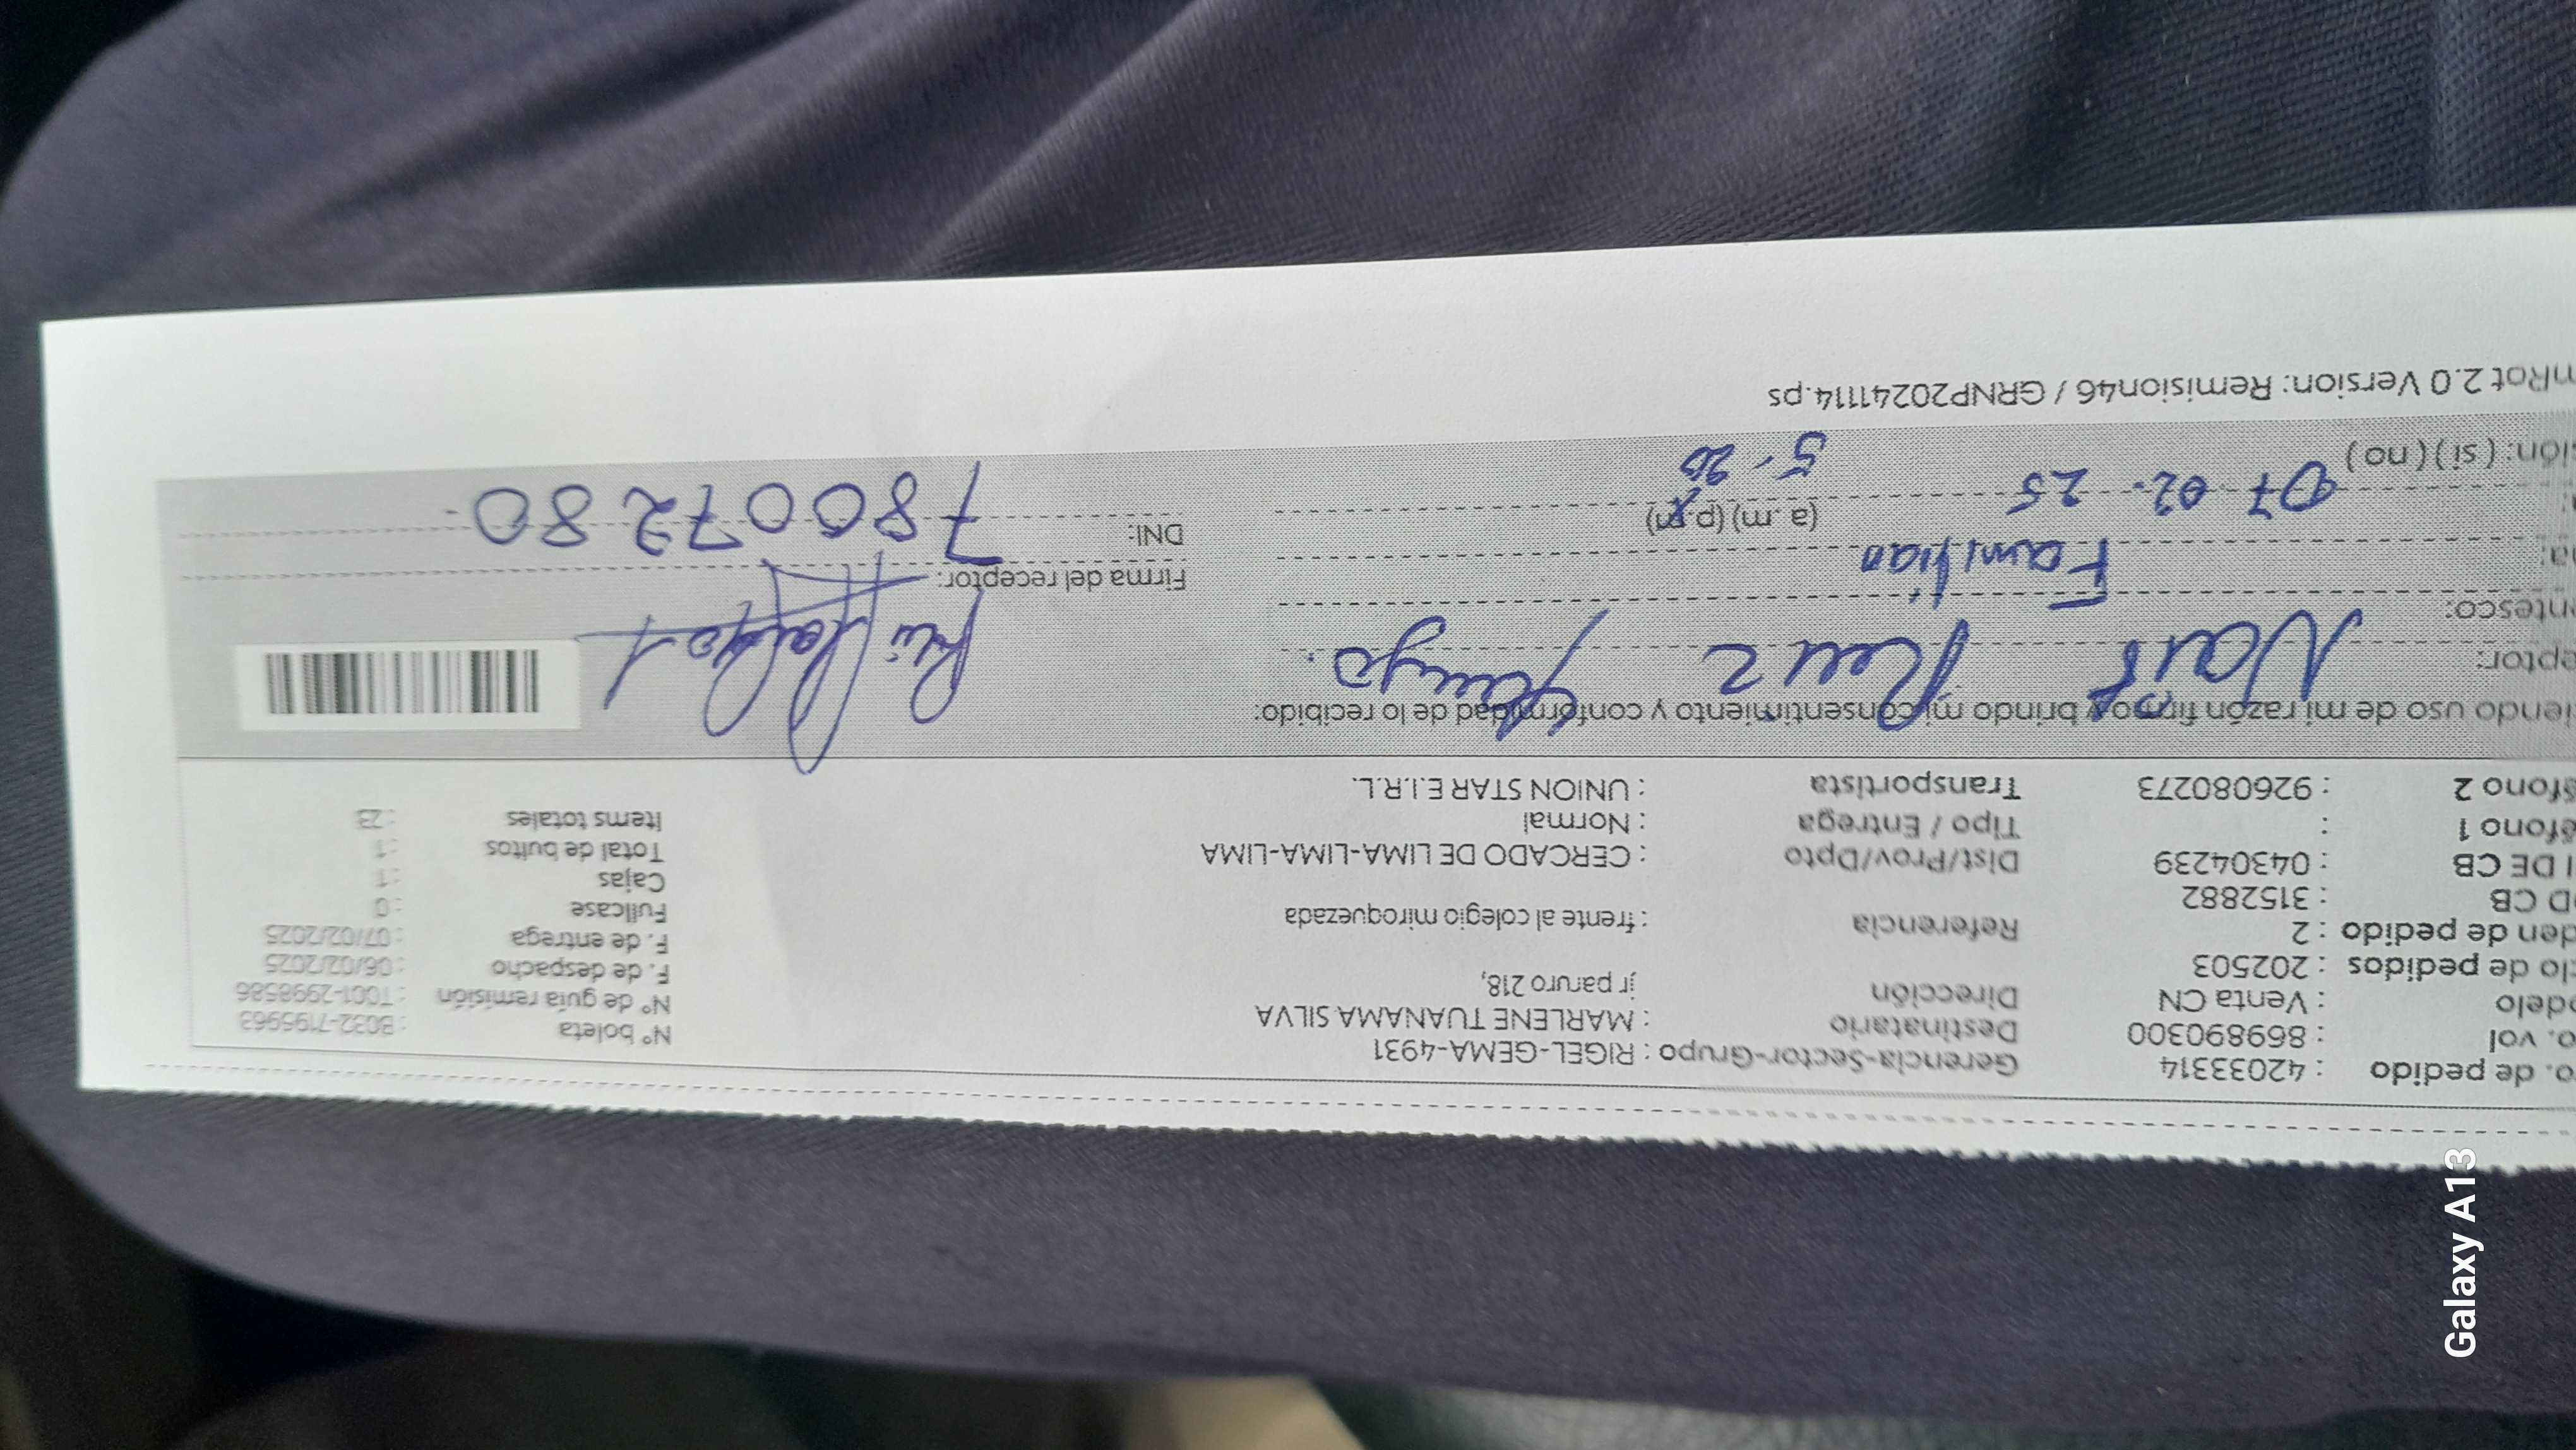 o. de pedido : 42033314 Gerencia-Sector-Grupo : RIGEL-GEMA-4931 N° boleta : B032-7195963
o. vol : 869890300 Destinatario : MARLENE TUANAMA SILVA N° de guía remisión : T001-2998586
odelo : Venta CN Dirección jr paruro 218, F. de despacho : 06/02/2025
clo de pedidos : 202503 F. de entrega : 07/02/2025
den de pedido : 2 Referencia : frente al colegio miroquezada Fullcase : 0
OD CB : 3152882 Cajas : 1
I DE CB : 04304239 Dist/Prov/Dpto : CERCADO DE LIMA-LIMA-LIMA Total de bultos : 1
éfono 1 : Tipo / Entrega : Normal Items totales : 23
éfono 2 : 926080273 Transportista : UNION STAR E.I.R.L.
iendo uso de mi razón firmo y brindo mi consentimiento y conformidad de lo recibido:
eptor: Ruiz
entesco: Familiar Firma del receptor:
a: 07 02. 25 (a.m) (p.m) 5.20 DNI: 78007280
sión: ( si ) ( no )
nRot 2.0 Version: Remision46 / GRNP20241114.ps
Galaxy A13